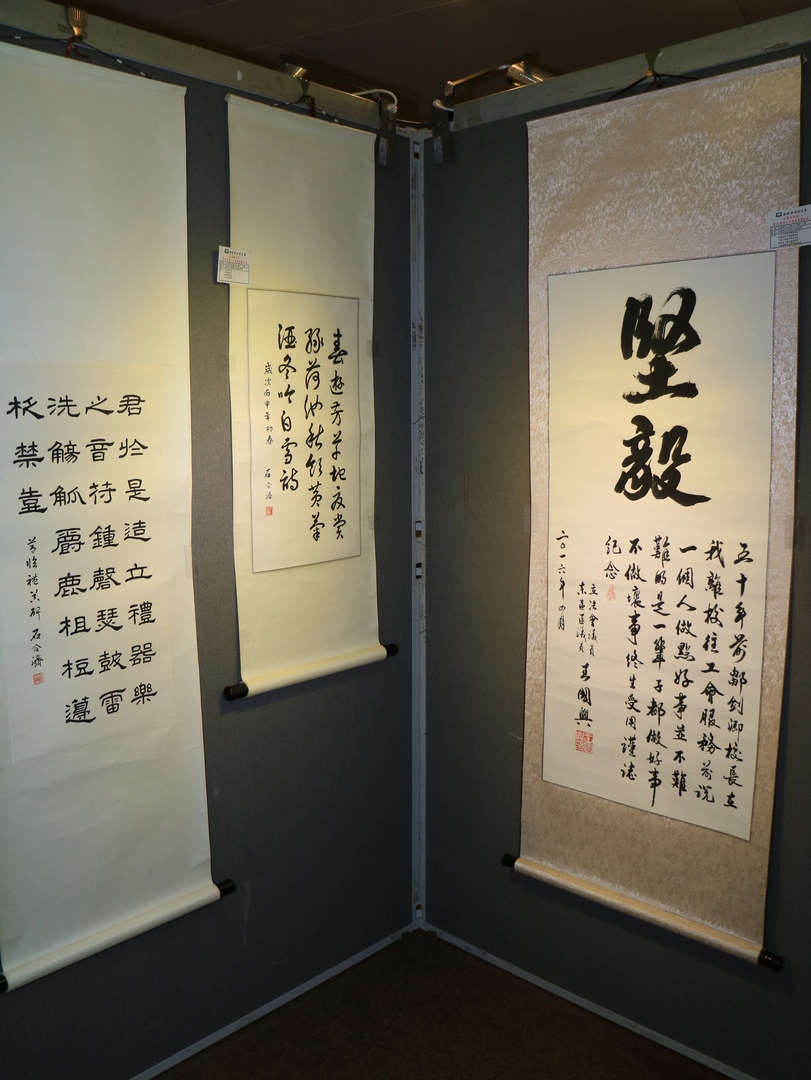 堅毅
五十年前鄒劍卿校長在
我離校往工會服務前説
一個人做點好事並不難
難的是一輩子都做好事
不做壞事終生受用謹誌
紀念
立法會議員
東區區議員
王國興
二〇一六年四月
春遊芳草地夏賞
綠荷池秋飲黃菊
酒冬吟白雪詩
歲次丙申年初春 石合濟
君於是造立禮器樂
之音符鍾磬瑟鼓雷
洗觴觚爵鹿柤梪籩
柉禁壺
節臨禮器碑 石合濟